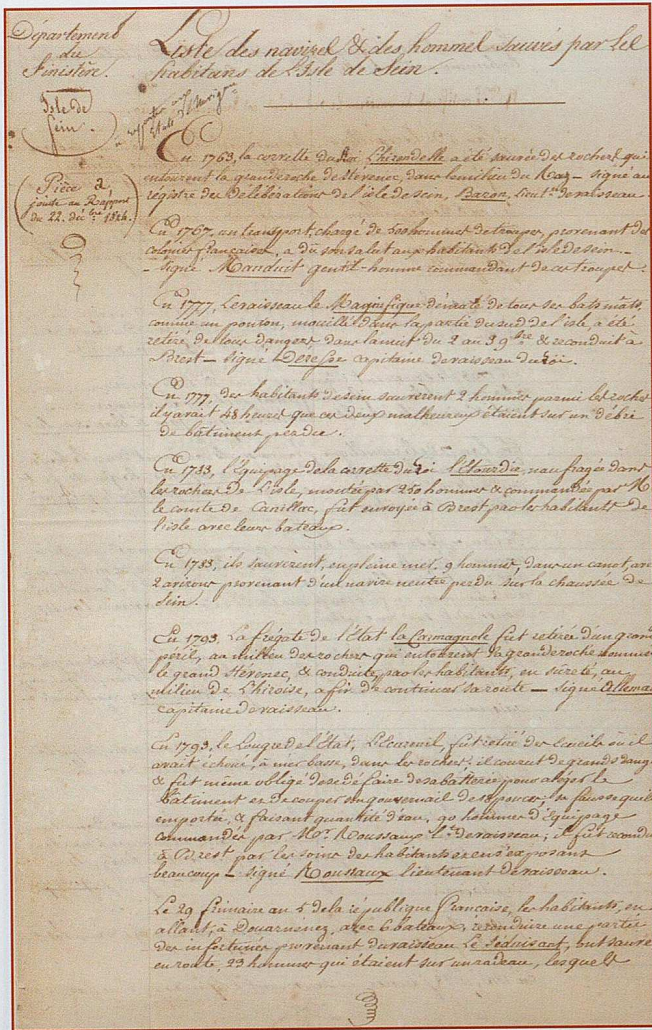 Département
du
Finistère.
Isle de
Sein.
Pièce 2,
jointe au Rapport
du 22. déc.bre 1824.
Liste des navires & des hommes sauvés par les
habitans de l'Isle de Sein.
à rapporter aux
En 1763, la corvette du Roi L'hirondelle a été sauvée des rochers qui
entourent la grande roche de Sterenec, dans le milieu du Raz — signé au
régistre des Délibérations de l'isle de sein, Bazon, Lieut.nt de vaisseau
En 1767, un transport, chargé de 500 hommes de troupes, provenant des
colonies françaises, a dû son salut aux habitants de l'isle de sein —
— signé Manduit gentil-homme commandant de ces troupes.
En 1777, Le vaisseau le Magnifique démâté de tous ses bats mâts,
comme un ponton, mouillé dans la partie du sud de l'isle, a été
retiré de tous dangers dans la nuit du 2 au 3 9.bre & reconduit à
Brest — signé capitaine de vaisseau du roi.
En 1777, des habitants de sein sauvèrent 2 hommes parmi les rochers
il y avait 48 heures que ces deux malheureux étaient sur un débri
de bâtiment perdu.
En 1783, l'équipage de la corvette du roi l'étourdie, naufragée dans
les rochers de L'isle, montée par 250 hommes & commandée par M
le comte de Canillac, fut envoyée à Brest par les habitants de
l'isle avec leurs bateaux.
En 1783, ils sauvèrent, en pleine mer, 9 hommes, dans un canot, avec
2 avirons provenant d'un navire neutre perdu sur la chaussée de
Sein.
En 1793. La frégate de l'État la Carmagnole fut retirée d'un grand
péril, au milieu des rochers qui entourent la grande roche nommée
le grand Stérenec, & conduite, par les habitants, en sûreté, au
milieu de L'hiroise, afin de continuer sa route — signé Allema
capitaine de vaisseau.
En 1793, le Lougre de l'État, L'Ecureuil, fut retiré des Ecueils où il
avait échoué, à mer basse, dans les rochers; il courut de grands dang
& fut même obligé de se défaire de sa batterie pour aléger le
bâtiment et de couper son gouvernail de sa fausse quille
emportée, & faisant quantité d'eau, 90 hommes d'équipage
commandée par M.r Roussaux L.t de vaisseau; il fut recondu
à Brest par les soins des habitants en s'exposant
beaucoup — signé Roussaux lieutenant de vaisseau.
Le 29 frimaire an 5 de la république française, les habitants, en
allant, à Douarnenez, avec 6 bateaux, reconduire une partie
des infortunés provenant du vaisseau Le Séduisant, ont sauvé
en route, 23 hommes qui étaient sur un radeau, lesquels